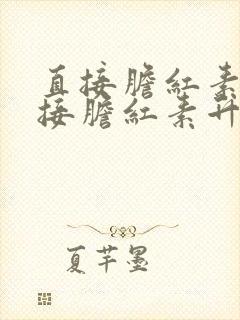 直接膽紅素
接膽紅素升
夏芊墨